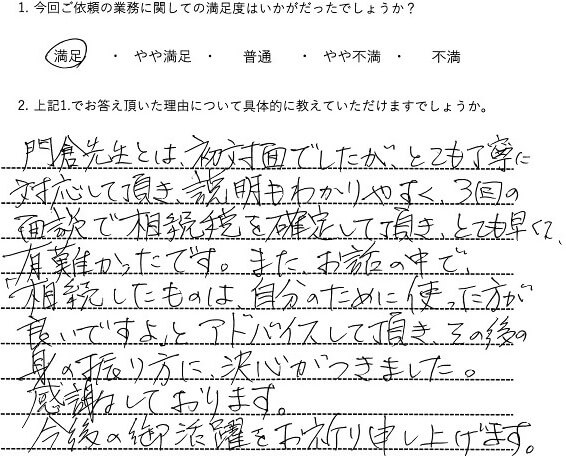 1. 今回ご依頼の業務に関しての満足度はいかがだったでしょうか？
満足 ・ やや満足 ・ 普通 ・ やや不満 ・ 不満
2. 上記1.でお答え頂いた理由について具体的に教えていただけますでしょうか。
門倉先生とは、初対面でしたが、とても丁寧に
対応して頂き、説明もわかりやすく、3回の
面談で相続税を確定して頂き、とても早くて、
有難かったです。また、お話の中で、
「相続したものは、自分のために使った方が
良いですよ」とアドバイスして頂き、その後の
身の振り方に、決心がつきました。
感謝しております。
今後の御活躍をお祈り申し上げます。